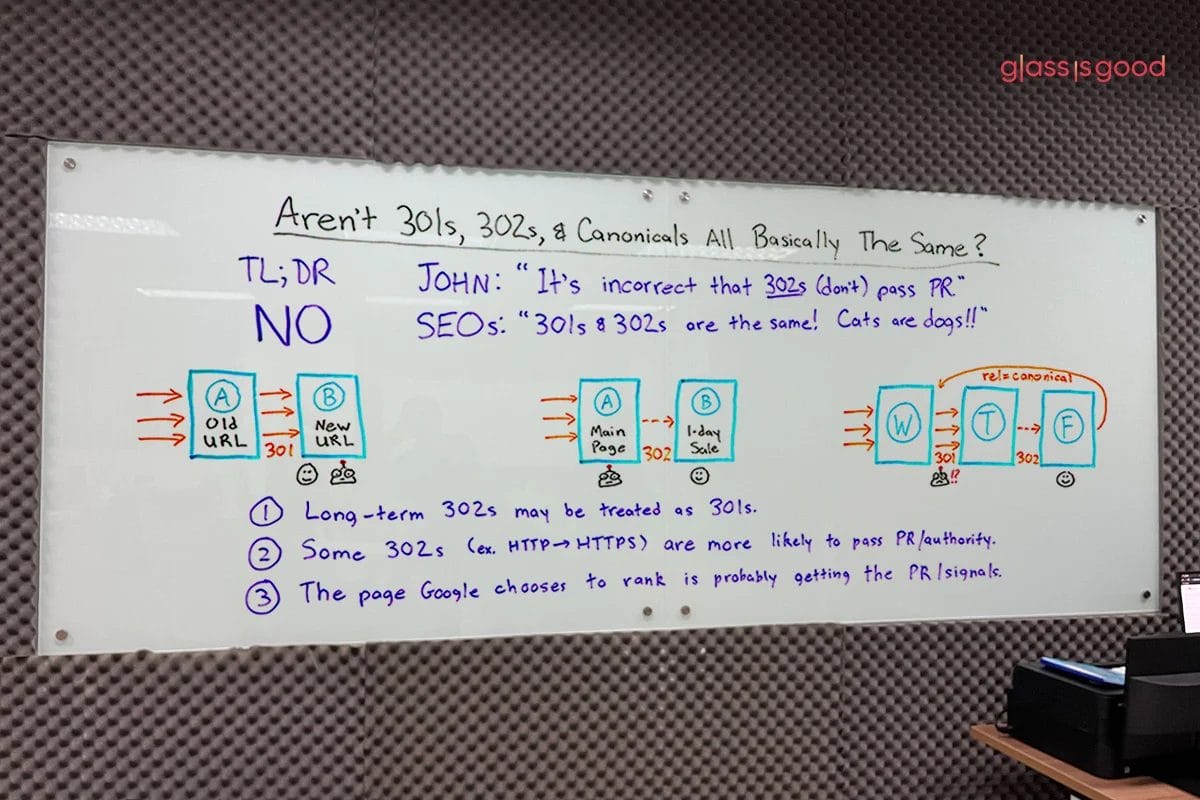 glass is good
Aren't 301s, 302s, & Canonicals All Basically The Same?
TL;DR
NO
JOHN: "It's incorrect that 302s (don't) pass PR."
SEOs: "301s & 302s are the same! Cats are dogs!!"
A
Old
URL
301
B
New
URL
A
Main
Page
302
B
1-day
Sale
rel=canonical
W
301
!?
T
302
F
1 Long-term 302s may be treated as 301s.
2 Some 302s (ex. HTTP→HTTPS) are more likely to pass PR/authority.
3 The page Google chooses to rank is probably getting the PR/signals.